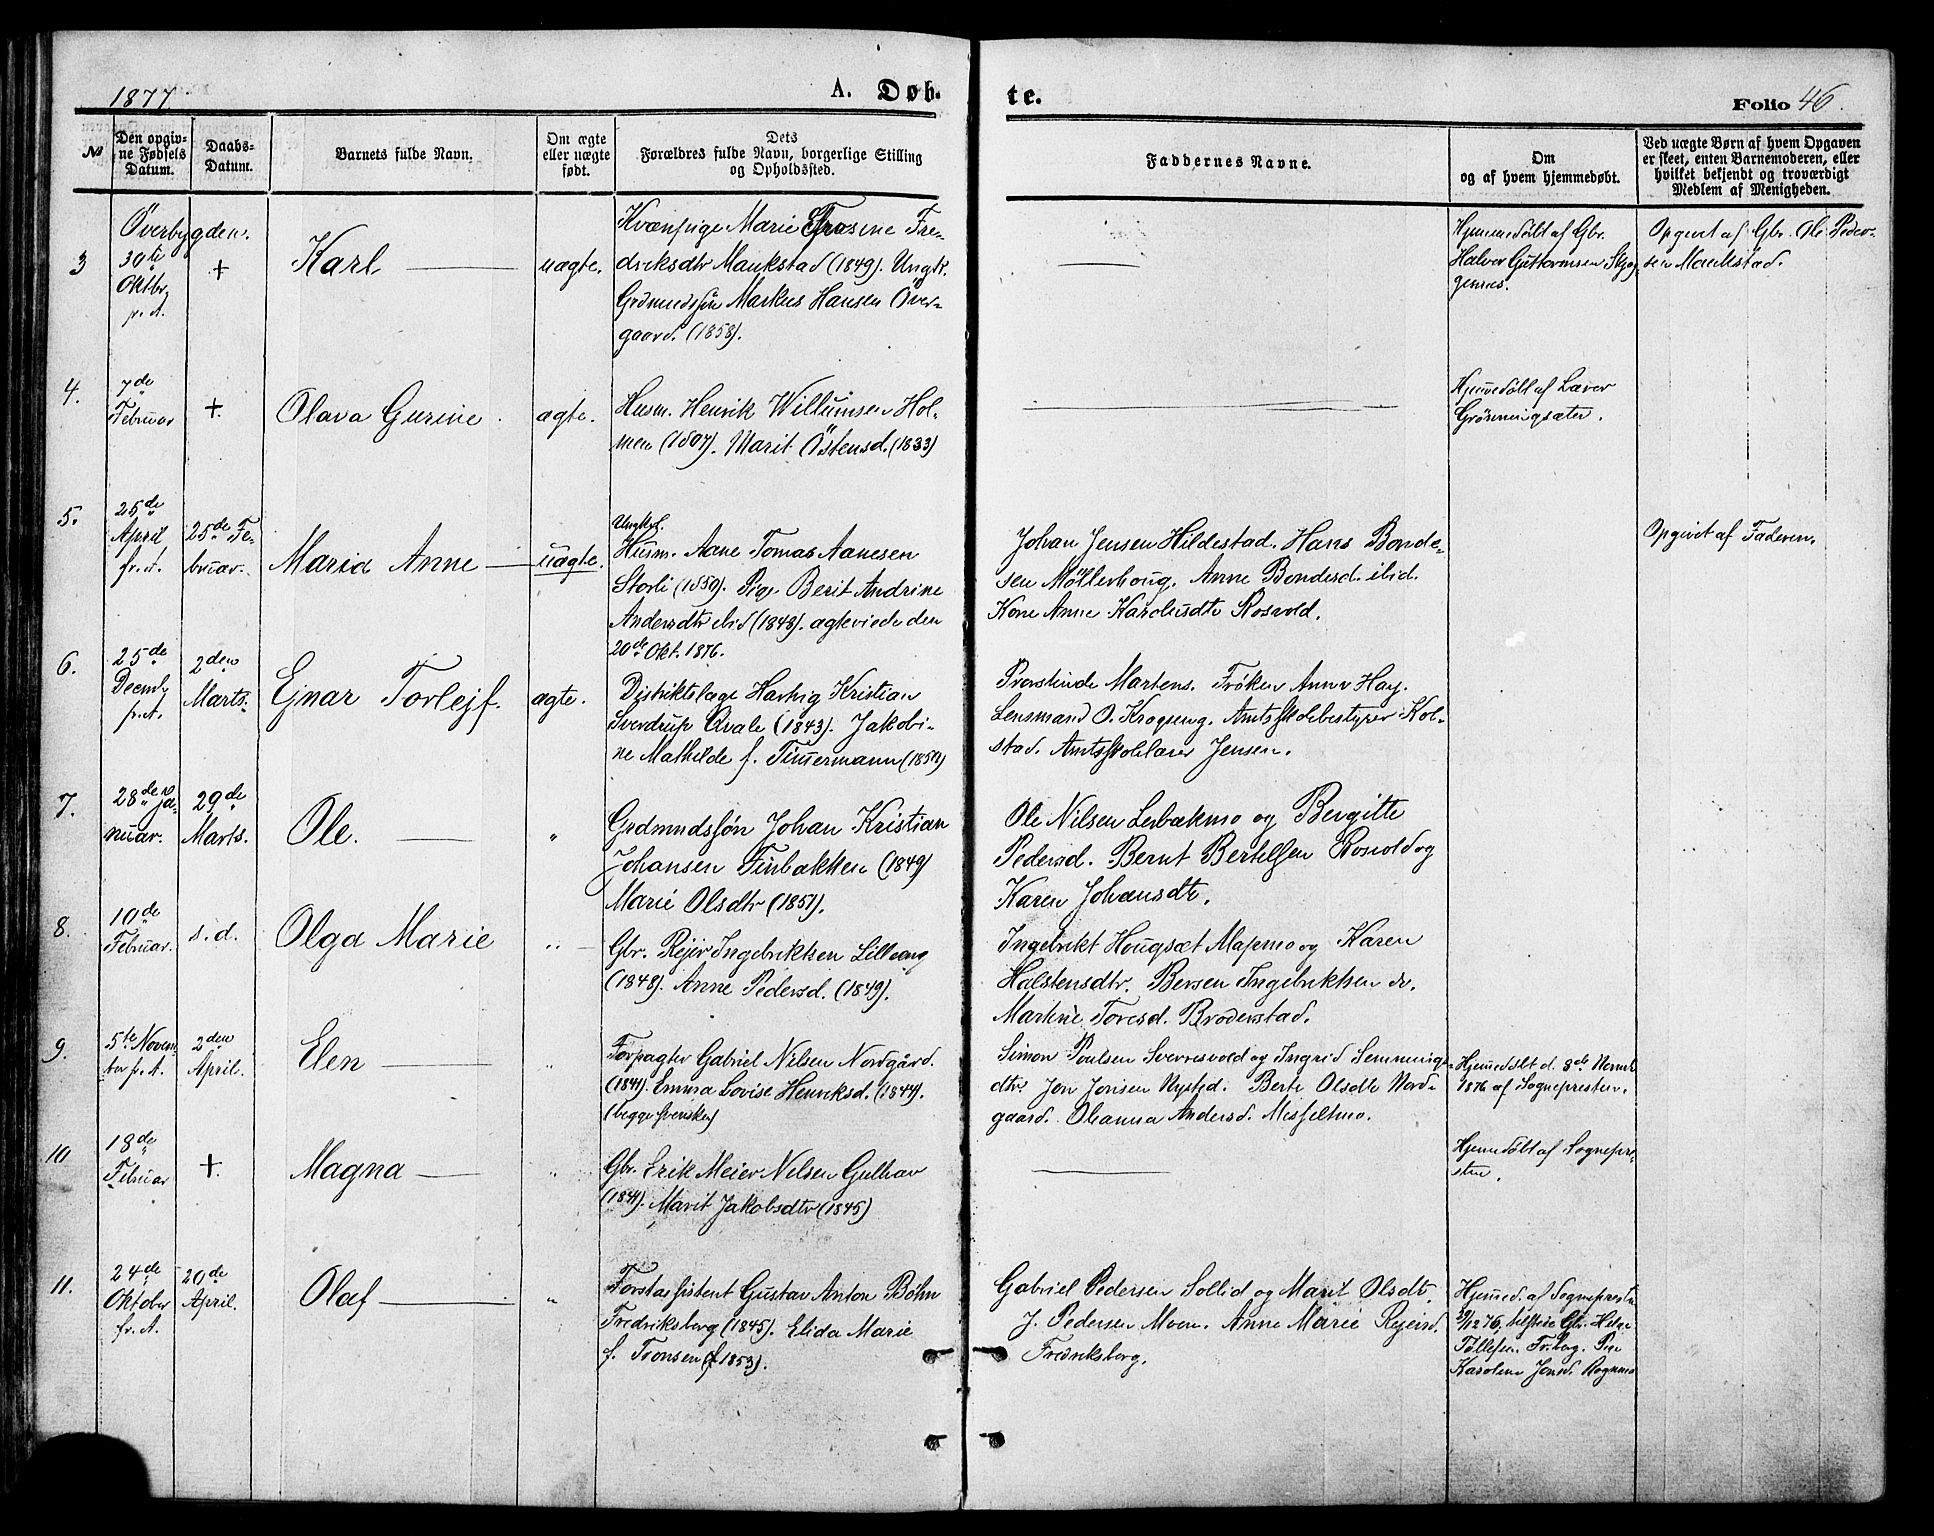 1877
A. Døb-
te.
Folio 46.
No
Den opgiv-
ne Fødsels
Datum.
Daabs-
Datum.
Barnets fulde Navn.
Om ægte
eller uægte
født.
Dets
Forældres fulde Navn, borgerlige Stilling
og Opholdssted.
Faddernes Navne.
Om
og af hvem hjemmedøbt.
Ved uægte Børn af hvem Opgaven
er skeet, enten Barnemoderen, eller
hvilket bekjendt og troværdigt
Medlem af Menigheden.
Överbygden.
3
30te
Oktbr
+
Karl
uægte.
Marie Fre-
driksdtr Maukstad (1849). Ungk.
Grdmandssøn Markus Hansen Över-
gaard. (1858).
Hjemmedöbt af Gbr.
Halvor Guttormsen
Opgivt af Gbr. Ole Peder-
sen Maukstad.
4.
7de
Februar
+.
Olava Gurine.
ægte.
Husm. Henrik Willumsen Hol-
men (1807). Marit Östensd. (1833)
Hjemmedöbt af Laver
5.
25de
April
fr. A.
25de Fe-
bruar.
Maria Anne
uægte.
Ungkrl.
Husm. Aane Tomas Aanesen
Storli (1850). Pige Berit Andrine
Andersdtr ibid (1848). ægteviede den
20de Okt. 1876.
Johan Jensen Hildestad. Hans Bonde-
sen Möllerhoug. Anne Bondesd. ibid.
Kone Anne Rosvold.
Opgivet af Faderen.
6.
25de
Decmb
fr. A.
2den
Marts.
Ejnar Torlejf.
ægte.
Distriktslæge Hartvig Kristian
Sverdrup Qvale (1843). Jakobi-
ne Mathilde f. Timmermann
Provstinde Martens. Fröken Anna Hay.
Lensmand O. Krogseng. Amtsskolebestyrer Kol-
stad. Amtsskolelærer Jensen.
7.
28de Ja-
nuar.
29de
Marts.
Ole.
"
Grdmndssøn Johan Kristian
Johansen Finbakken (1849)
Marie Olsdtr (1851).
Ole Nilsen Lerbækmo og Bergitte
Pedersd. Bernt Bertelsen Rosvold og
Karen Johansdtr.
8.
10de
Februar.
s. d.
Olga Marie
"
Gbr. Rejer Ingebriktsen Lilleeng
(1848). Anne Pedersd. (1849).
Ingebrikt Hougsæt Mapmo og Karen
Halstensdtr. Ingebriktsen
Martine Toresd. Broderstad.
9.
5te Novem-
ber fr. A.
2den
April.
Elen
"
Forpagter Gabriel Nilsen Nordgård.
(1841). Emma Lovise Henriksd. (1844).
(begge svenske)
Simon Poulsen Sverresvold og Ingrid Semmings-
dtr. Jon Jonsen Nysted. Berte Olsdtr Nord-
gaard. Olianna Andersd. Messeltmo.
Hjemmedöbt d. 8de
1876 af Sognepresten.
10
18de
Februar
+.
Magna
"
Gbr. Erik Meier Nilsen Gulhav
(1841). Marit Jakobsdtr (1845)
Hjemmedöbt af Sognepre-
sten.
11.
24de
Oktober
fr. A.
20de
April.
Olaf
"
Forstassistent Gustav Anton Bøhn
Fredriksberg (1845). Elida Marie
f. Tronsen (1853).
Gabriel Pedersen Sollid og Marit Olsdtr.
J. Pedersen Moen. Anne Marie Rejersd.
Fredriksberg.
Hjemmed. af Sognepresten
Tollefsen
Karoline Jensd. Rognmo